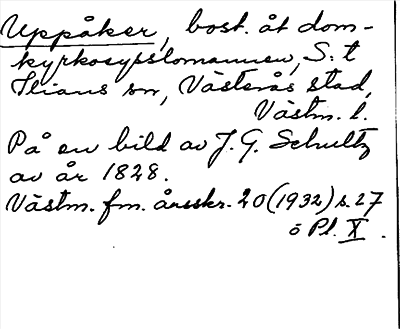 Uppåker, bost. åt dom-
kyrkosysslomannen, S:t
Ilians sn, Västerås stad,
Västm. l.
På en bild av J. G. Schultz
av år 1828.
Västm. fm. årsskr. 20 (1932) s. 27
o Pl. X.